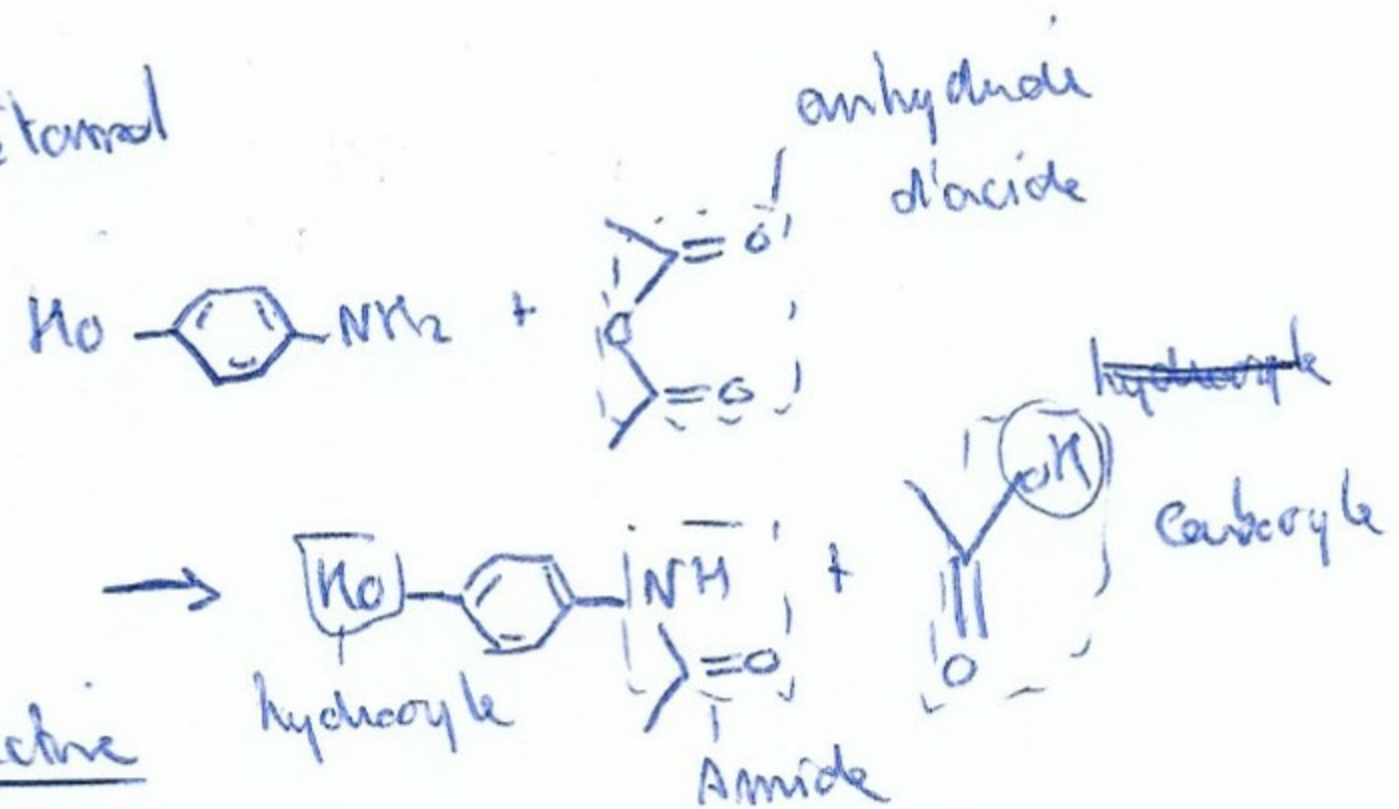 étamol
anhydride
d'acide
HO NH2 + O O O
hydroxyle
OH
carboxyle
→ HO NH O + O
hydroxyle
Amide
ctive